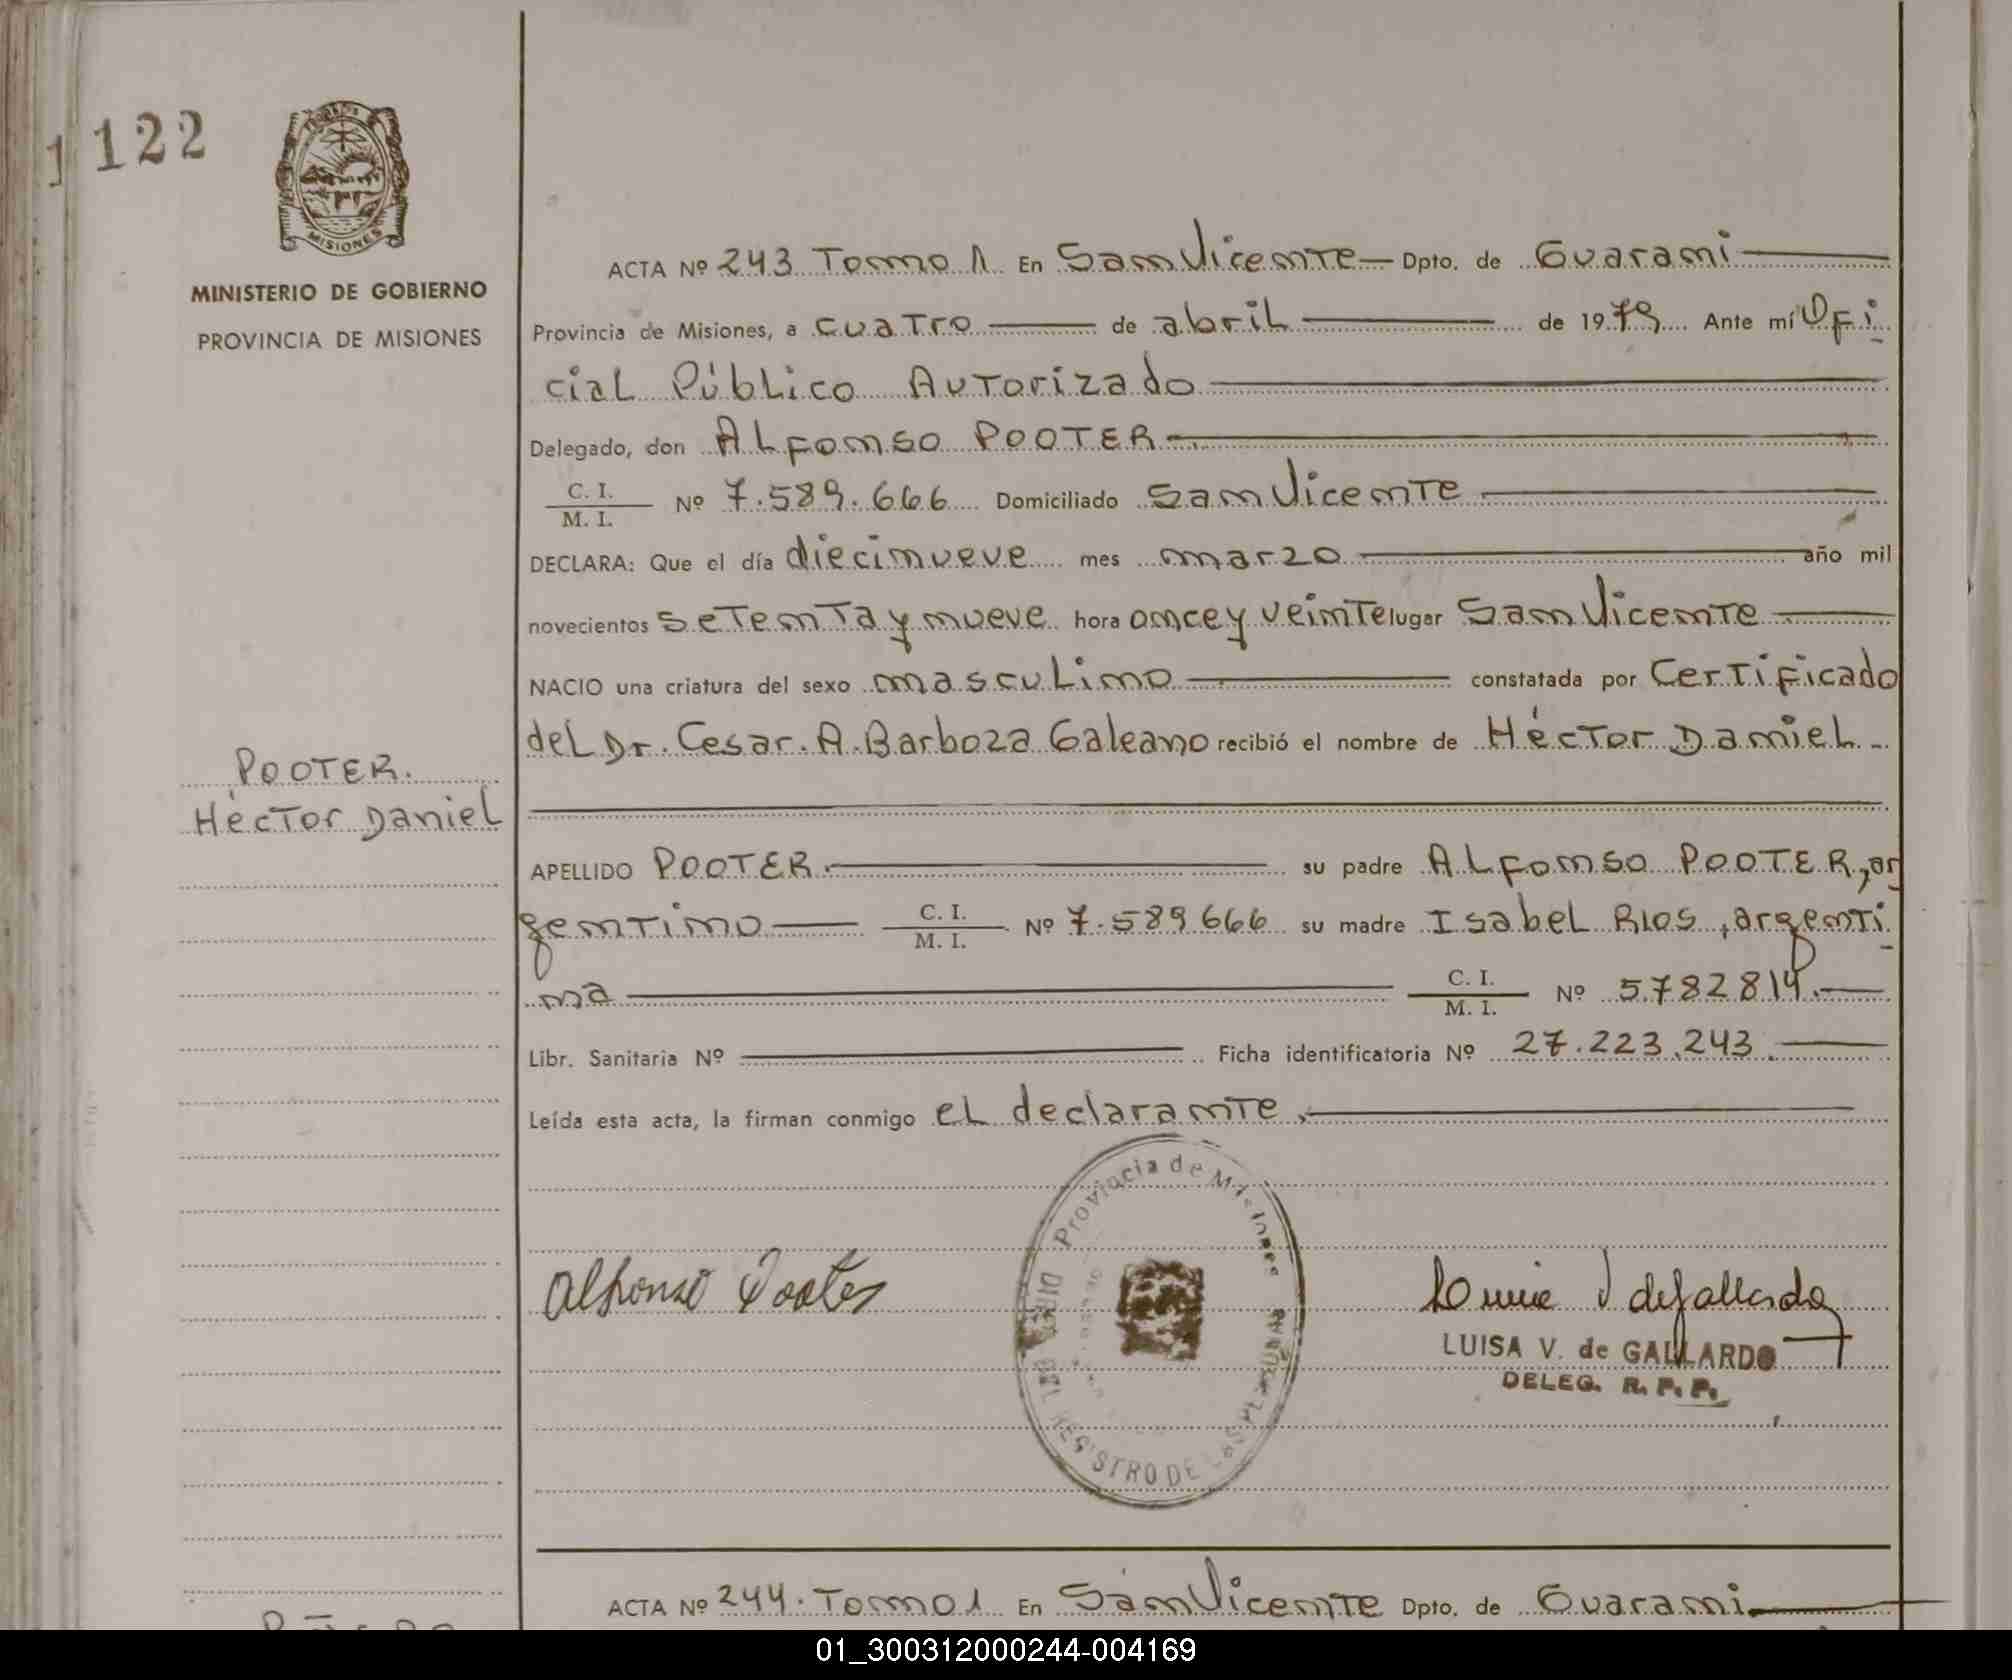 1122
MISIONES
MINISTERIO DE GOBIERNO
PROVINCIA DE MISIONES
ACTA Nº 243 Tomo 1 En San Vicente Dpto. de Guarani
Provincia de Misiones, a cuatro de abril de 1979 Ante mí Ofi
cial Público Autorizado
Delegado, don Alfonso POOTER
C. I.
M. I.
Nº 7.589.666 Domiciliado San Vicente
DECLARA: Que el día diecinueve mes marzo año mil
novecientos setenta y nueve hora once y veinte lugar San Vicente
NACIO una criatura del sexo masculino constatada por Certificado
del Dr. Cesar. A. Barboza Galeano recibió el nombre de Héctor Daniel
POOTER.
Héctor Daniel
APELLIDO POOTER su padre Alfonso POOTER, ar
gentino C. I. / M. I. Nº 7.589666 su madre Isabel RIOS, argenti
na C. I. / M. I. Nº 5.782814.
Libr. Sanitaria Nº Ficha identificatoria Nº 27.223.243
Leída esta acta, la firman conmigo el declarante.
Provincia de Misiones
DEL REGISTRO DE LAS PERSONAS
Alfonso Pooter
LUISA V. de GALLARDO
DELEG. R. P. P.
ACTA Nº 244. Tomo 1 En San Vicente Dpto. de Guarani
01_300312000244-004169